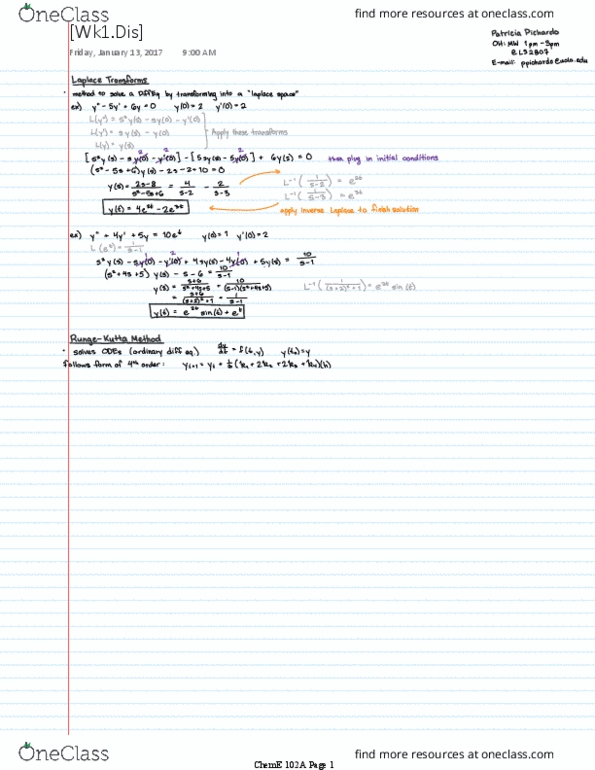 OneClass
find more resources at oneclass.com
[Wk1.Dis]
Friday, January 13, 2017 9:00 AM
Patricia Pichardo
OH: MW 1pm-3pm
@LS2807
E-mail: ppichardo@ucla.edu
Laplace Transforms
· method to solve a DiffEq by transforming into a "laplace space"
ex) y" - 5y' + 6y = 0 y(0) = 2 y'(0) = 2
L(y") = s²y(s) - sy(0) - y'(0)
L(y') = sy(s) - y(0)
L(y) = y(s)
Apply these transforms
[s²y(s) - sy(0) - y'(0)] - [5sy(s) - 5y(0)] + 6y(s) = 0 then plug in initial conditions
(s² - 5s + 6)y(s) - 2s - 2 + 10 = 0
y(s) = 2s-8 / s²-5s+6 = 4 / s-2 - 2 / s-3
L⁻¹(1 / s-2) = e²ᵗ
L⁻¹(1 / s-3) = e³ᵗ
y(t) = 4e²ᵗ - 2e³ᵗ
apply inverse Laplace to finish solution
ex) y" + 4y' + 5y = 10eᵗ y(0) = 1 y'(0) = 2
L(eᵗ) = 1 / s-1
s²y(s) - sy(0) - y'(0) + 4sy(s) - 4y(0) + 5y(s) = 10 / s-1
(s² + 4s + 5) y(s) - s - 6 = 10 / s-1
y(s) = s+6 / s²+4s+5 + 10 / (s-1)(s²+4s+5)
L⁻¹(1 / (s+2)²+1) = e²ᵗ sin(t)
y(t) = e²ᵗ sin(t) + eᵗ
Runge-Kutta Method
· solves ODEs (ordinary diff eq.) dy/dt = f(t,y) y(t₀) = y
follows form of 4th order: yᵢ₊₁ = yᵢ + 1/6 (k₁ + 2k₂ + 2k₃ + k₄)(h)
OneClass
find more resources at oneclass.com
ChemE 102A Page 1